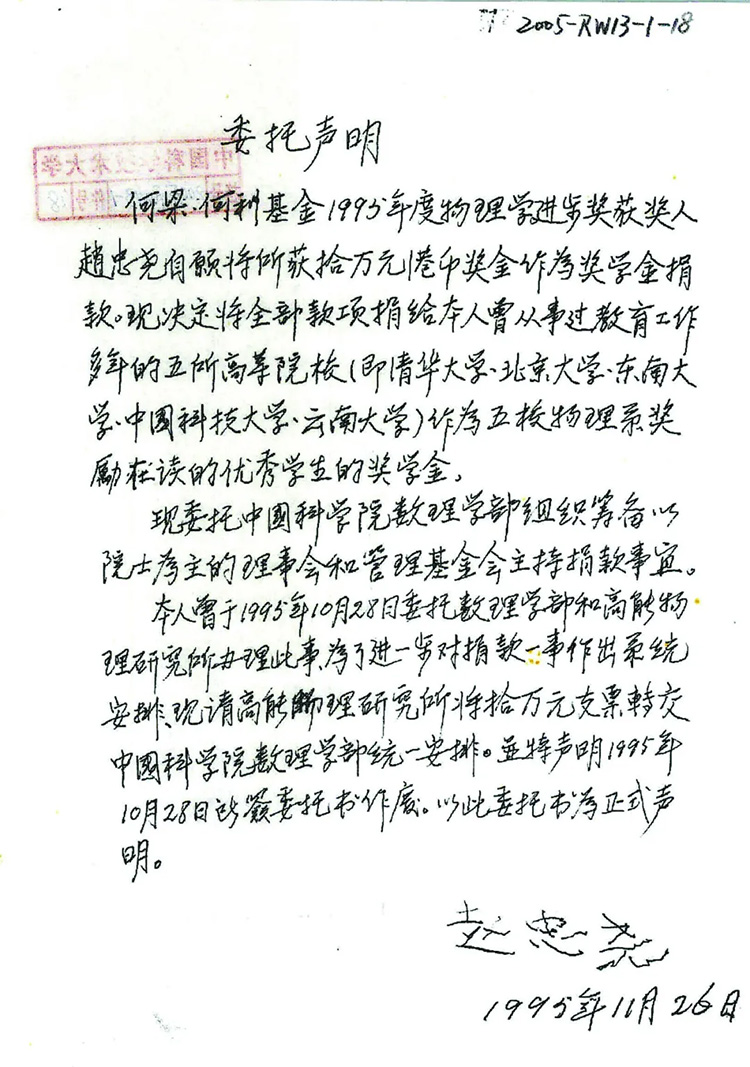 2005-RW13-1-18
委托声明
中国科 技术大学
何梁·何利基金1995年度物理学进步奖获奖人
趙忠尧自願将所获拾万元港币奖金作为奖学金捐
款。现决定将全部款项捐给本人曾从事过教育工作
多年的五所高等院校(即清华大学、北京大学、东南大
学、中国科技大学、云南大学)作为五校物理系奖
励在读的优秀学生的奖学金。
现委托中國科学院数理学部组织筹备以
院士为主的理事会和管理基金会主持捐款事宜。
本人曾于1995年10月28日委托数理学部和高能物
理研究所办理此事,为了进一步对捐款一事作出系统
安排、现请高能物理研究所将拾万元支票轉交
中國科学院数理学部统一安排。並特声明1995年
10月28日所簽委托书作废。以此委托书为正式声
明。
赵忠尧
1995年11月26日